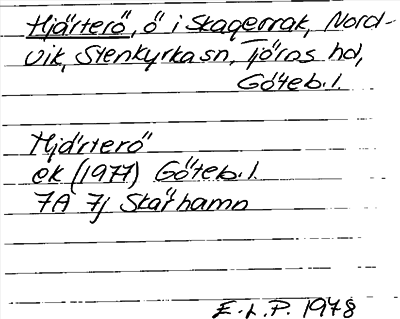 Hjärterö, ö i Skagerrak, Nord-
vik, Stenkyrka sn, Tjörns hd,
Göteb. l.
Hjärterö
ek (1977) Göteb. l.
7A 7j Skärhamn
E.L.P. 1978